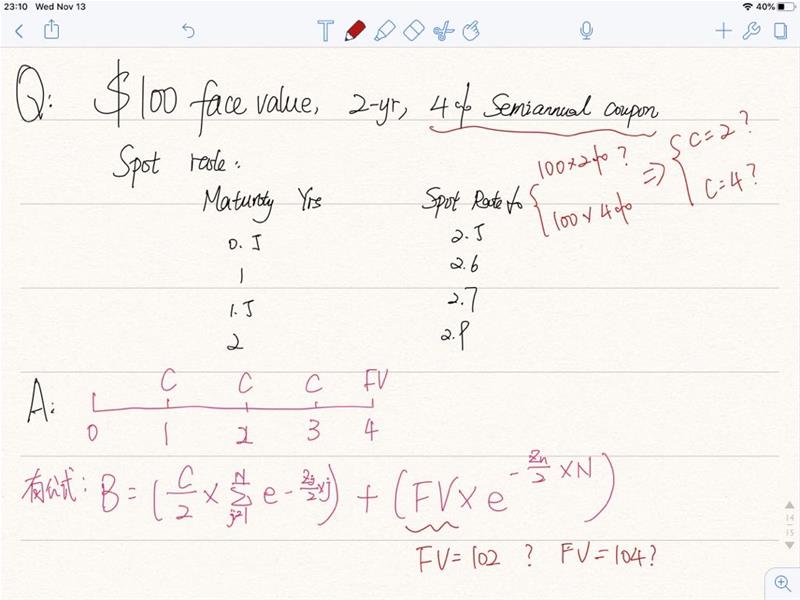 23:10 Wed Nov 13
40%
Q: $100 face value, 2-yr, 4% Semiannual coupon
100×2% ? ⇒ { C=2 ?
100×4% C=4 ?
Spot rate:
Maturity Yrs Spot Rate %
0.5 2.5
1 2.6
1.5 2.7
2 2.9
A:
C C C FV
0 1 2 3 4
有公式: B = (C/2 × Σ_{j=1}^{N} e^{-Zj/2 ×j}) + (FV × e^{-Zn/2 ×N})
FV=102 ? FV=104?
14
15